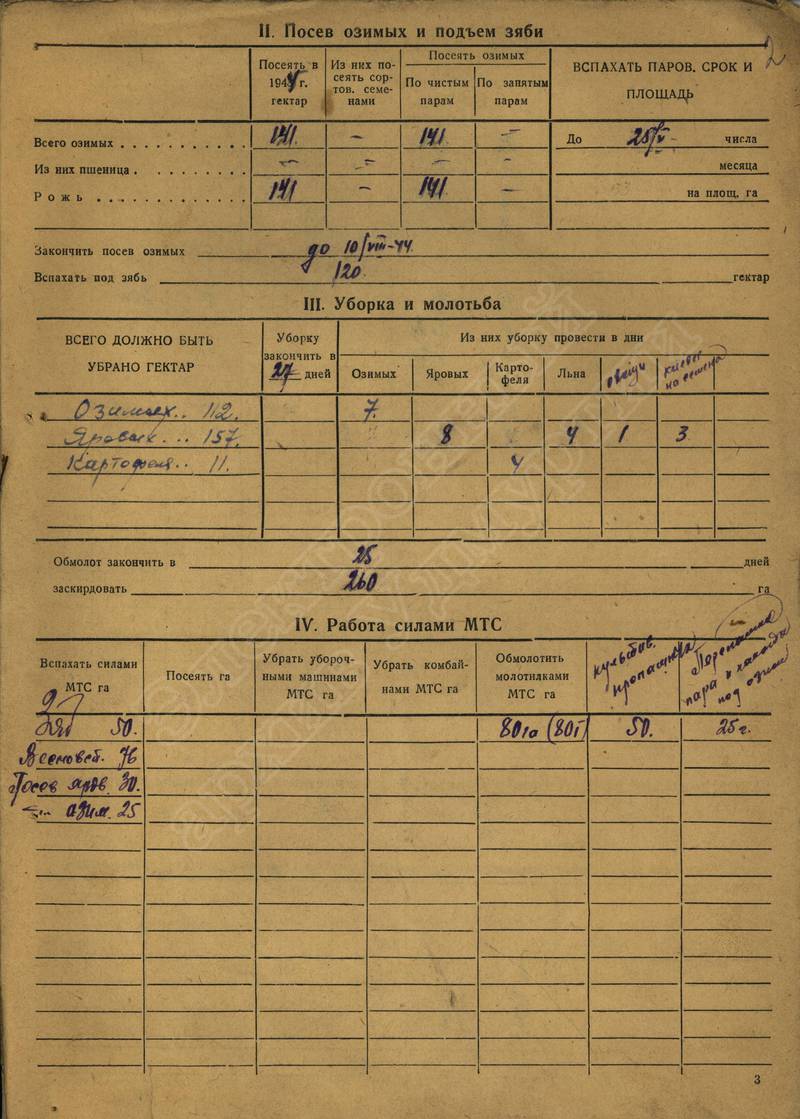 2
II. Посев озимых и подъем зяби
Посеять в 1944 г. гектар
Из них по-
сеять сор-
тов. семе-
нами
Посеять озимых
По чистым парам
По занятым парам
ВСПАХАТЬ ПАРОВ. СРОК И
ПЛОЩАДЬ
Всего озимых . . . . . . . . . . . 141 — 141 — До 25/V — числа
Из них пшеница . . . . . . . . . — — — — месяца
Рожь . . . . . . . . . . . . . 141 — 141 — на площ. га
Закончить посев озимых до 10/VIII-44
Вспахать под зябь 120 гектар
III. Уборка и молотьба
ВСЕГО ДОЛЖНО БЫТЬ
УБРАНО ГЕКТАР
Уборку
закончить в
27 дней
Из них уборку провести в дни
Озимых
Яровых
Карто-
феля
Льна
на семена
Озимых.. 112. 7
Яровых ... 157. 8 4 1 3
Картофеля.. 11. 4
Обмолот закончить в 25 дней
заскирдовать 260 га
IV. Работа силами МТС
Вспахать силами
МТС га
Посеять га
Убрать убороч-
ными машинами
МТС га
Убрать комбай-
нами МТС га
Обмолотить
молотилками
МТС га
пара
под
50. 80га (80т) 50. 25г.
76
Посев яров. 30.
—"— озим. 25
3